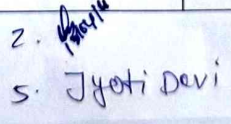 2.
5. Jyoti Devi